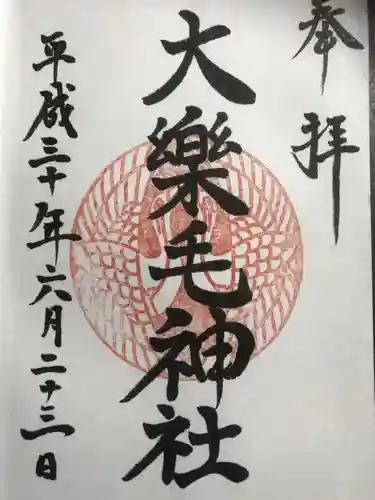 奉拝
大樂毛神社
平成三十年六月二十三日